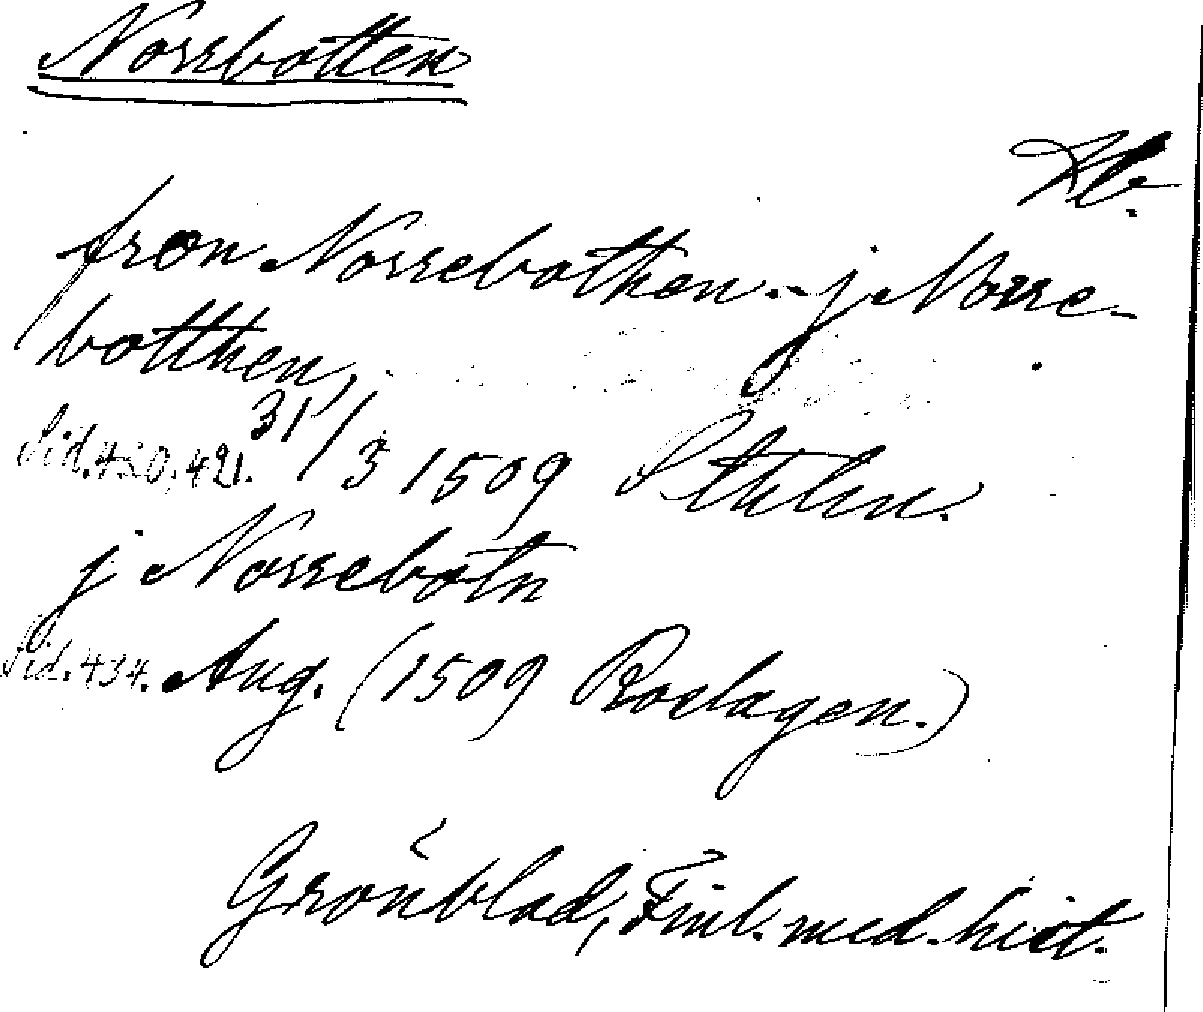 Norrbotten
Nb.
fron Norrebothen. j Norre-
botthen,
Sid. 420, 421. 31/3 1509 Sthlm.
j Norrebotn
Sid. 434. Aug. (1509 Roslagen.)
Grönblad, Finl. med. hist.